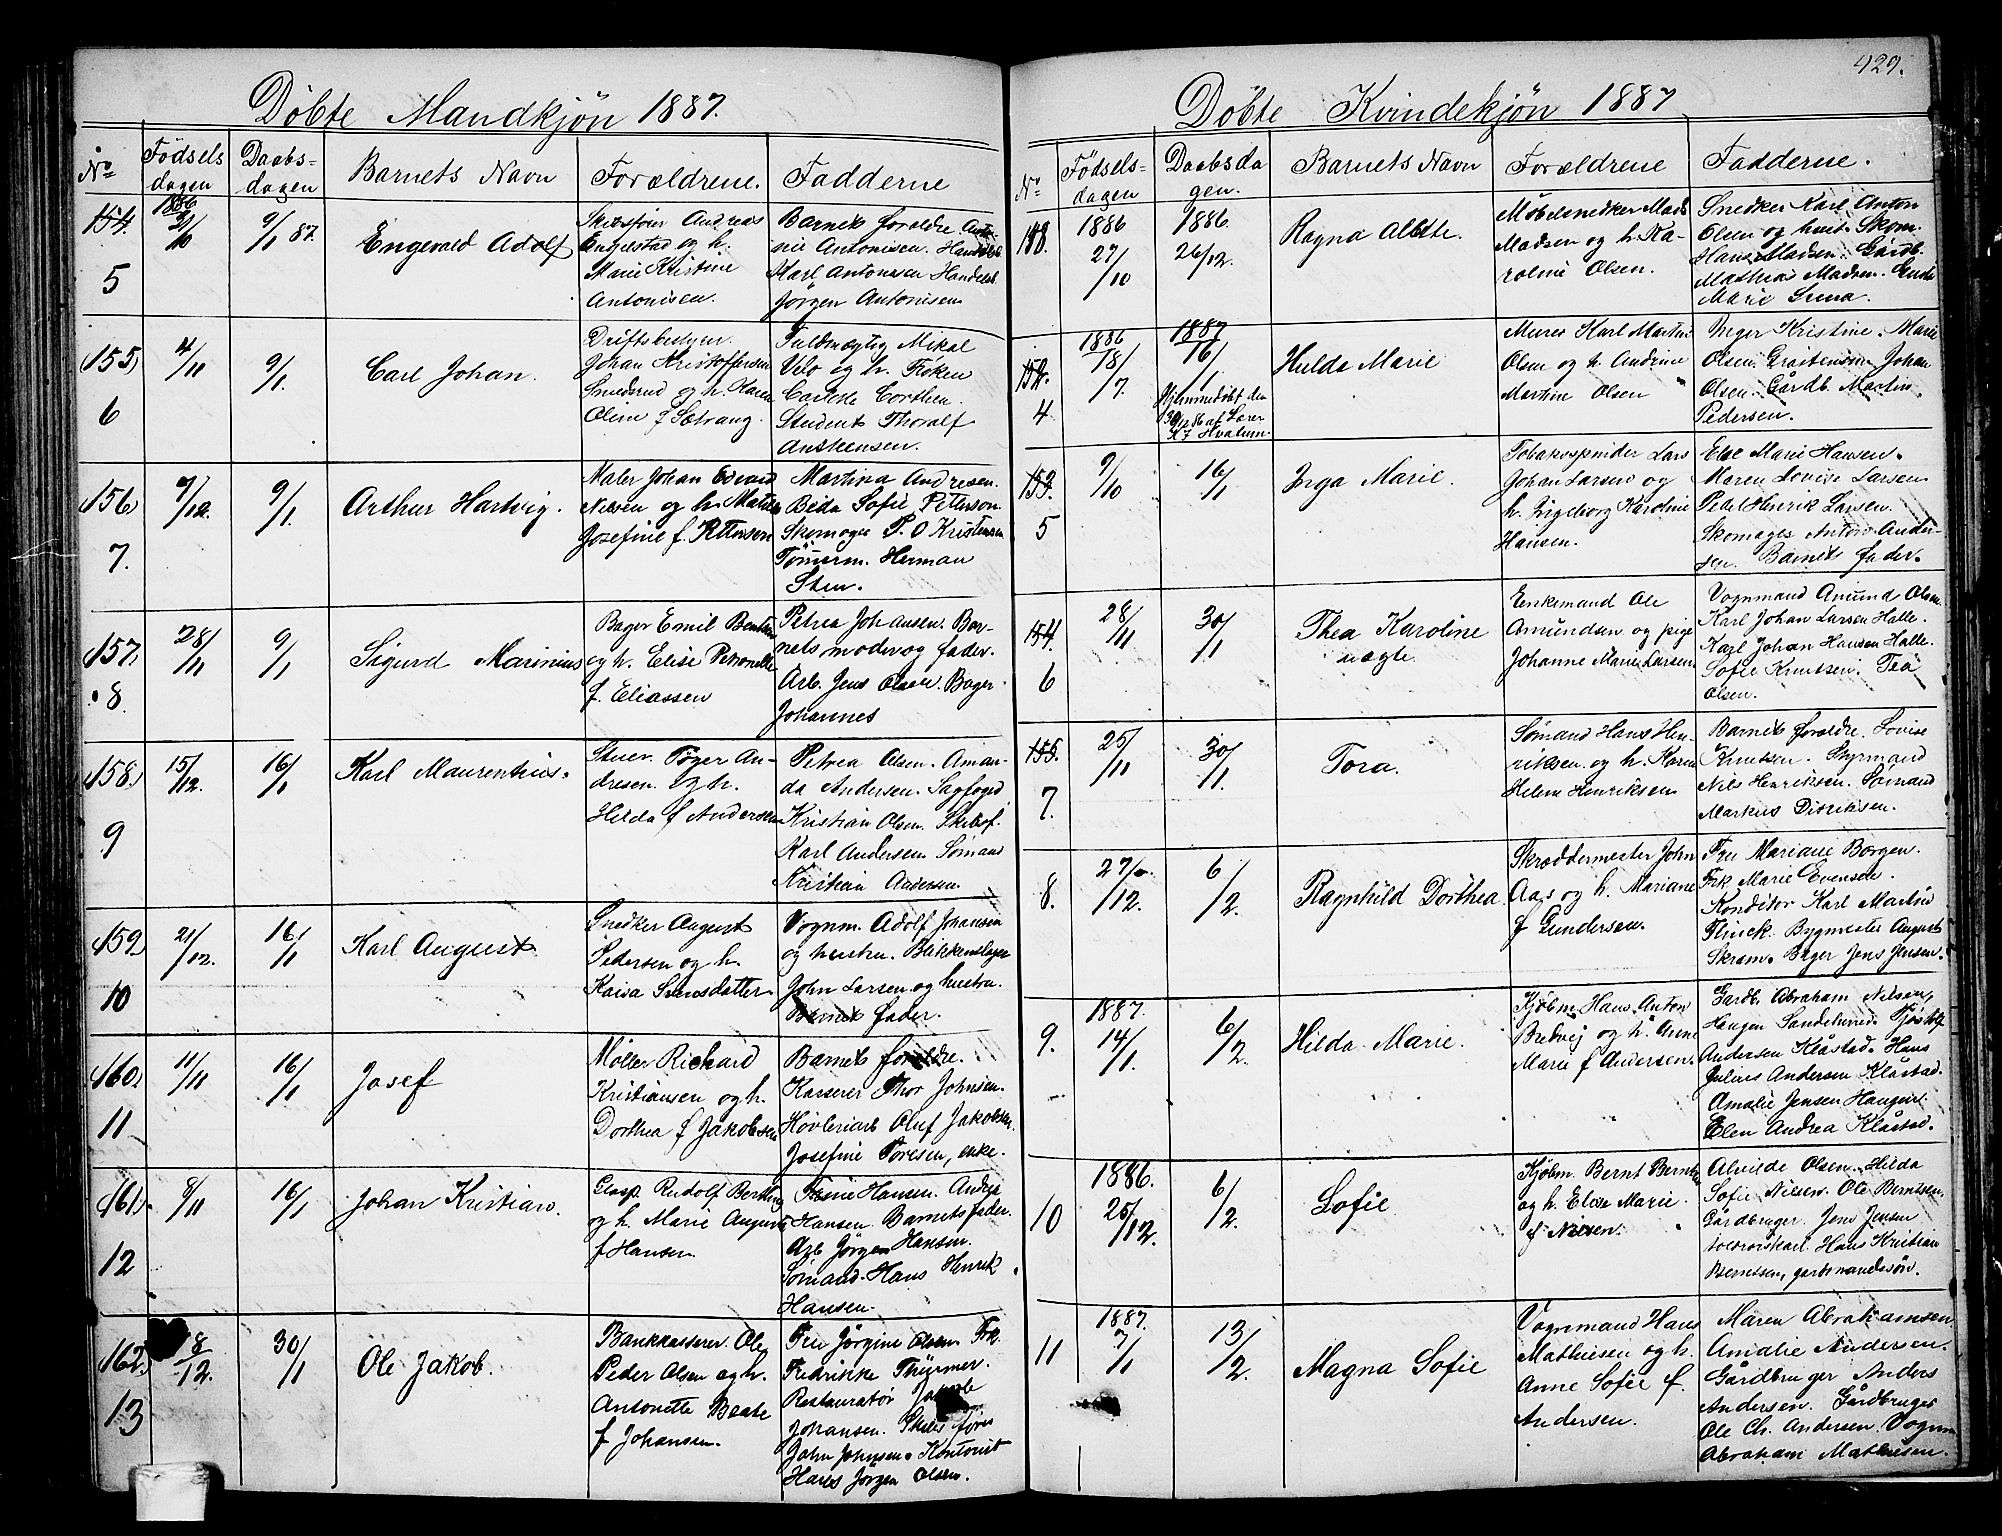 429.
Döbte Mandkjøn 1887.
No Fødsels dagen Daabs- dagen Barnets Navn Forældrene. Fadderne
154. 5
1886 2/10
9/1 87.
Engevald Adolf
Skibsfør Andreas
Engelstad og h.
Marie Kristine
Antonisen.
Barnets forældre
Antonisen.
Karl Antonisen Handelsb.
Jörgen Antonisen
155) 6
4/11
9/1.
Carl Johan.
Driftsbestyrer
Johan Kristoffersen
og h. Karen
Oline f Sætrang.
Fuldmægtig Mikal
Velo og h. Frøken
Student Thoralf
Anstensen.
156) 7.
7/12.
9/1.
Arthur Hartvig.
Maler Johan Edvard
Nilsen og h. Matilde
Josefine f. Pettersen
Martina Andresen.
Beda Sofie Peterson
Skomager P. O Kristensen
Tömmerm. Herman
Sten.
157. 8
28/11
9/1
Sigurd Marinius
Bager Emil Bentsen
og h. Elise Petronelle
f. Eliassen
Petrea Johansen. Bar-
nets moder og fader.
Arb. Jens Olsen. Bager
Johannes
158) 9
15/12.
16/1
Karl Maurentius.
Stuer. Töger An-
dresen. og h.
Hilda f Andersen
Petrea Olsen. Aman-
da Andersen. Sagfoged
Kristian Olsen. Skibsf.
Karl Andersen Sömand
Kristian Andersen.
159) 10
21/12.
16/1
Karl August
Snedker August
Pedersen og h.
Kaisa Svensdatter
Vognm. Adolf Johansen
og hustru. Blikkenslager
John Larsen og hustru.
Barnets fader.
160) 11
11/11
16/1
Josef
Møller Richard
Kristiansen og h.
Dorthea f Jakobsen
Barnets forældre.
Kasserer Thor Johnsen.
Høvleriarb Oluf Jakobsen.
Josefine Toresen, enke.
161). 12
9/11
16/1
Johan Kristian.
Rudolf
og h. Marie Auguste
f Hansen
Hansen. Andrea
Hansen Barnets fader.
Arb Jörgen Hansen.
Sömand Hans Henrik
Hansen.
162) 13
18/12.
30/1
Ole Jakob.
Bankkasserer. Ole
Peder Olsen og h.
Antonette Beate
f Johansen.
Fru Jörgine Olsen. Frk.
Fredrikke Thürmer.
Restauratør Jakob
Johansen. Skibsfører
John Johnsen. Kontorist
Hans Jörgen Olsen.
Döbte Kvindekjön 1887
No. Fødsels- dagen Daabsda gen. Barnets Navn Forældrene Fadderne.
1886 27/10
1886. 26/12.
Ragna Alette.
Møbelsnedker Mads
Madsen og h. Ka-
roline Olsen.
Snedker Karl Anton
Olsen og hust. Skom.
Hans Madsen. Gårdb.
Mathias Madsen.
Marie
152. 4
1886 18/7.
1887 16/1
Hjemmedøbt den
30/12 86 af Lærer
Hvatum.
Hilda Marie
Murer Karl Martin
Olsen og h Andrine
Martine Olsen
Inger Kristine. Marie
Olsen. Johan
Olsen. Gårdb. Martin
Pedersen.
153. 5
9/10
16/1
Inga Marie.
Tobakspinder Lars
Johan Larsen og
h. Ingeborg Karoline
Hansen.
Else Marie Hansen.
Maren Lovise Larsen
Peder Henrik Larsen.
Skomager Anton Ander-
sen. Barnets fader.
154. 6
28/11
30/1
Thea Karoline
uægte.
Enkemand Ole
Amundsen og pige
Johanne Marie Larsen
Vognmand Amund Olsen.
Karl Johan Larsen Halle.
Karl Johan Hansen Halle.
Sofie Knutsen. Tea
Olsen.
155. 7.
25/11
30/1.
Tora.
Sömand Hans Hen-
riksen. og h. Karen
Helene Henriksen
Barnets forældre. Lovise
Knutsen. Styrmand
Nils Henriksen. Sömand
Markus Didriksen.
8.
27/12.
6/2.
Ragnhild Dorthea
Skræddermester John
Aas og h. Mariane
f Gundersen.
Fru Mariane Borgen.
Frk Marie Evensen.
Konditor Karl Martin
Flinck. Bygmester August
Skram. Bager Jens Jensen.
9.
1887. 14/1.
6/2
Hilda Marie.
Kjøbm. Hans Anton
Bredvej og h. Anne
Marie f Andersen.
Gardb. Abraham Nilsen,
Haugen Sandeherred.
Andersen Klåstad. Hans
Julius Andersen Klåstad.
Amalie Jensen Haugen.
Elen Andrea Klåstad.
10
1886. 25/12.
6/2.
Sofie
Kjøbm. Bernt Berntsen
og h. Elise Marie
f. Nilsen.
Alvilde Olsen. Hilda
Sofie Nilsen. Ole Berntsen
Gårdbruger. Jens Jensen
Hans Kristian
Berntsen, gårdmandssön.
11
1887. 7/1
13/2.
Magna Sofie
Vognmand Hans
Mathiesen og h.
Anne Sofie f.
Andersen.
Maren Abrahamsen
Amalie Andersen.
Gårdbruger Anders
Andersen. Gårdbruger
Ole Ch. Andersen. Vognm
Abraham Mathisen.